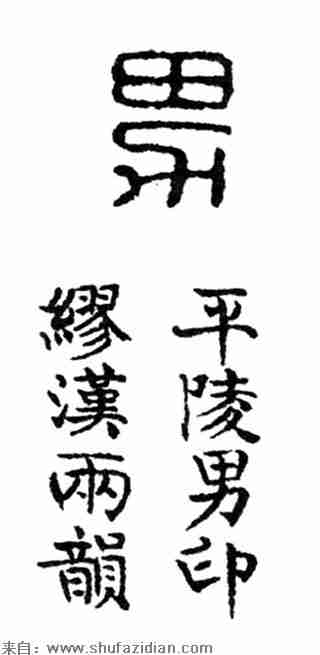 男
平陵男印
繆漢兩韻
来自：www.shufazidian.com